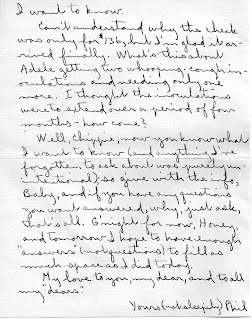 I want to know.
Can't understand why the check
was only for $136, but I'm glad it ar-
rived finally. What's this about
Adele getting two whooping cough in-
oculations and needing only one
more. I thought the inoculations
were to extend over a period of four
months - how come?
Well Chippie, now you know what
I want to know (and anything I've
forgotten to ask about was purely un-
intentional) so give with the info,
Baby, and if you have any questions
you want answered, why, just ask,
that's all. G'night for now, Honey,
and tomorrow I hope to have enough
"answers" (not questions) to fill as
much space as I did today.
My love to you, my dear, and to all
my "dears".
Yours (not sleepily) Phil